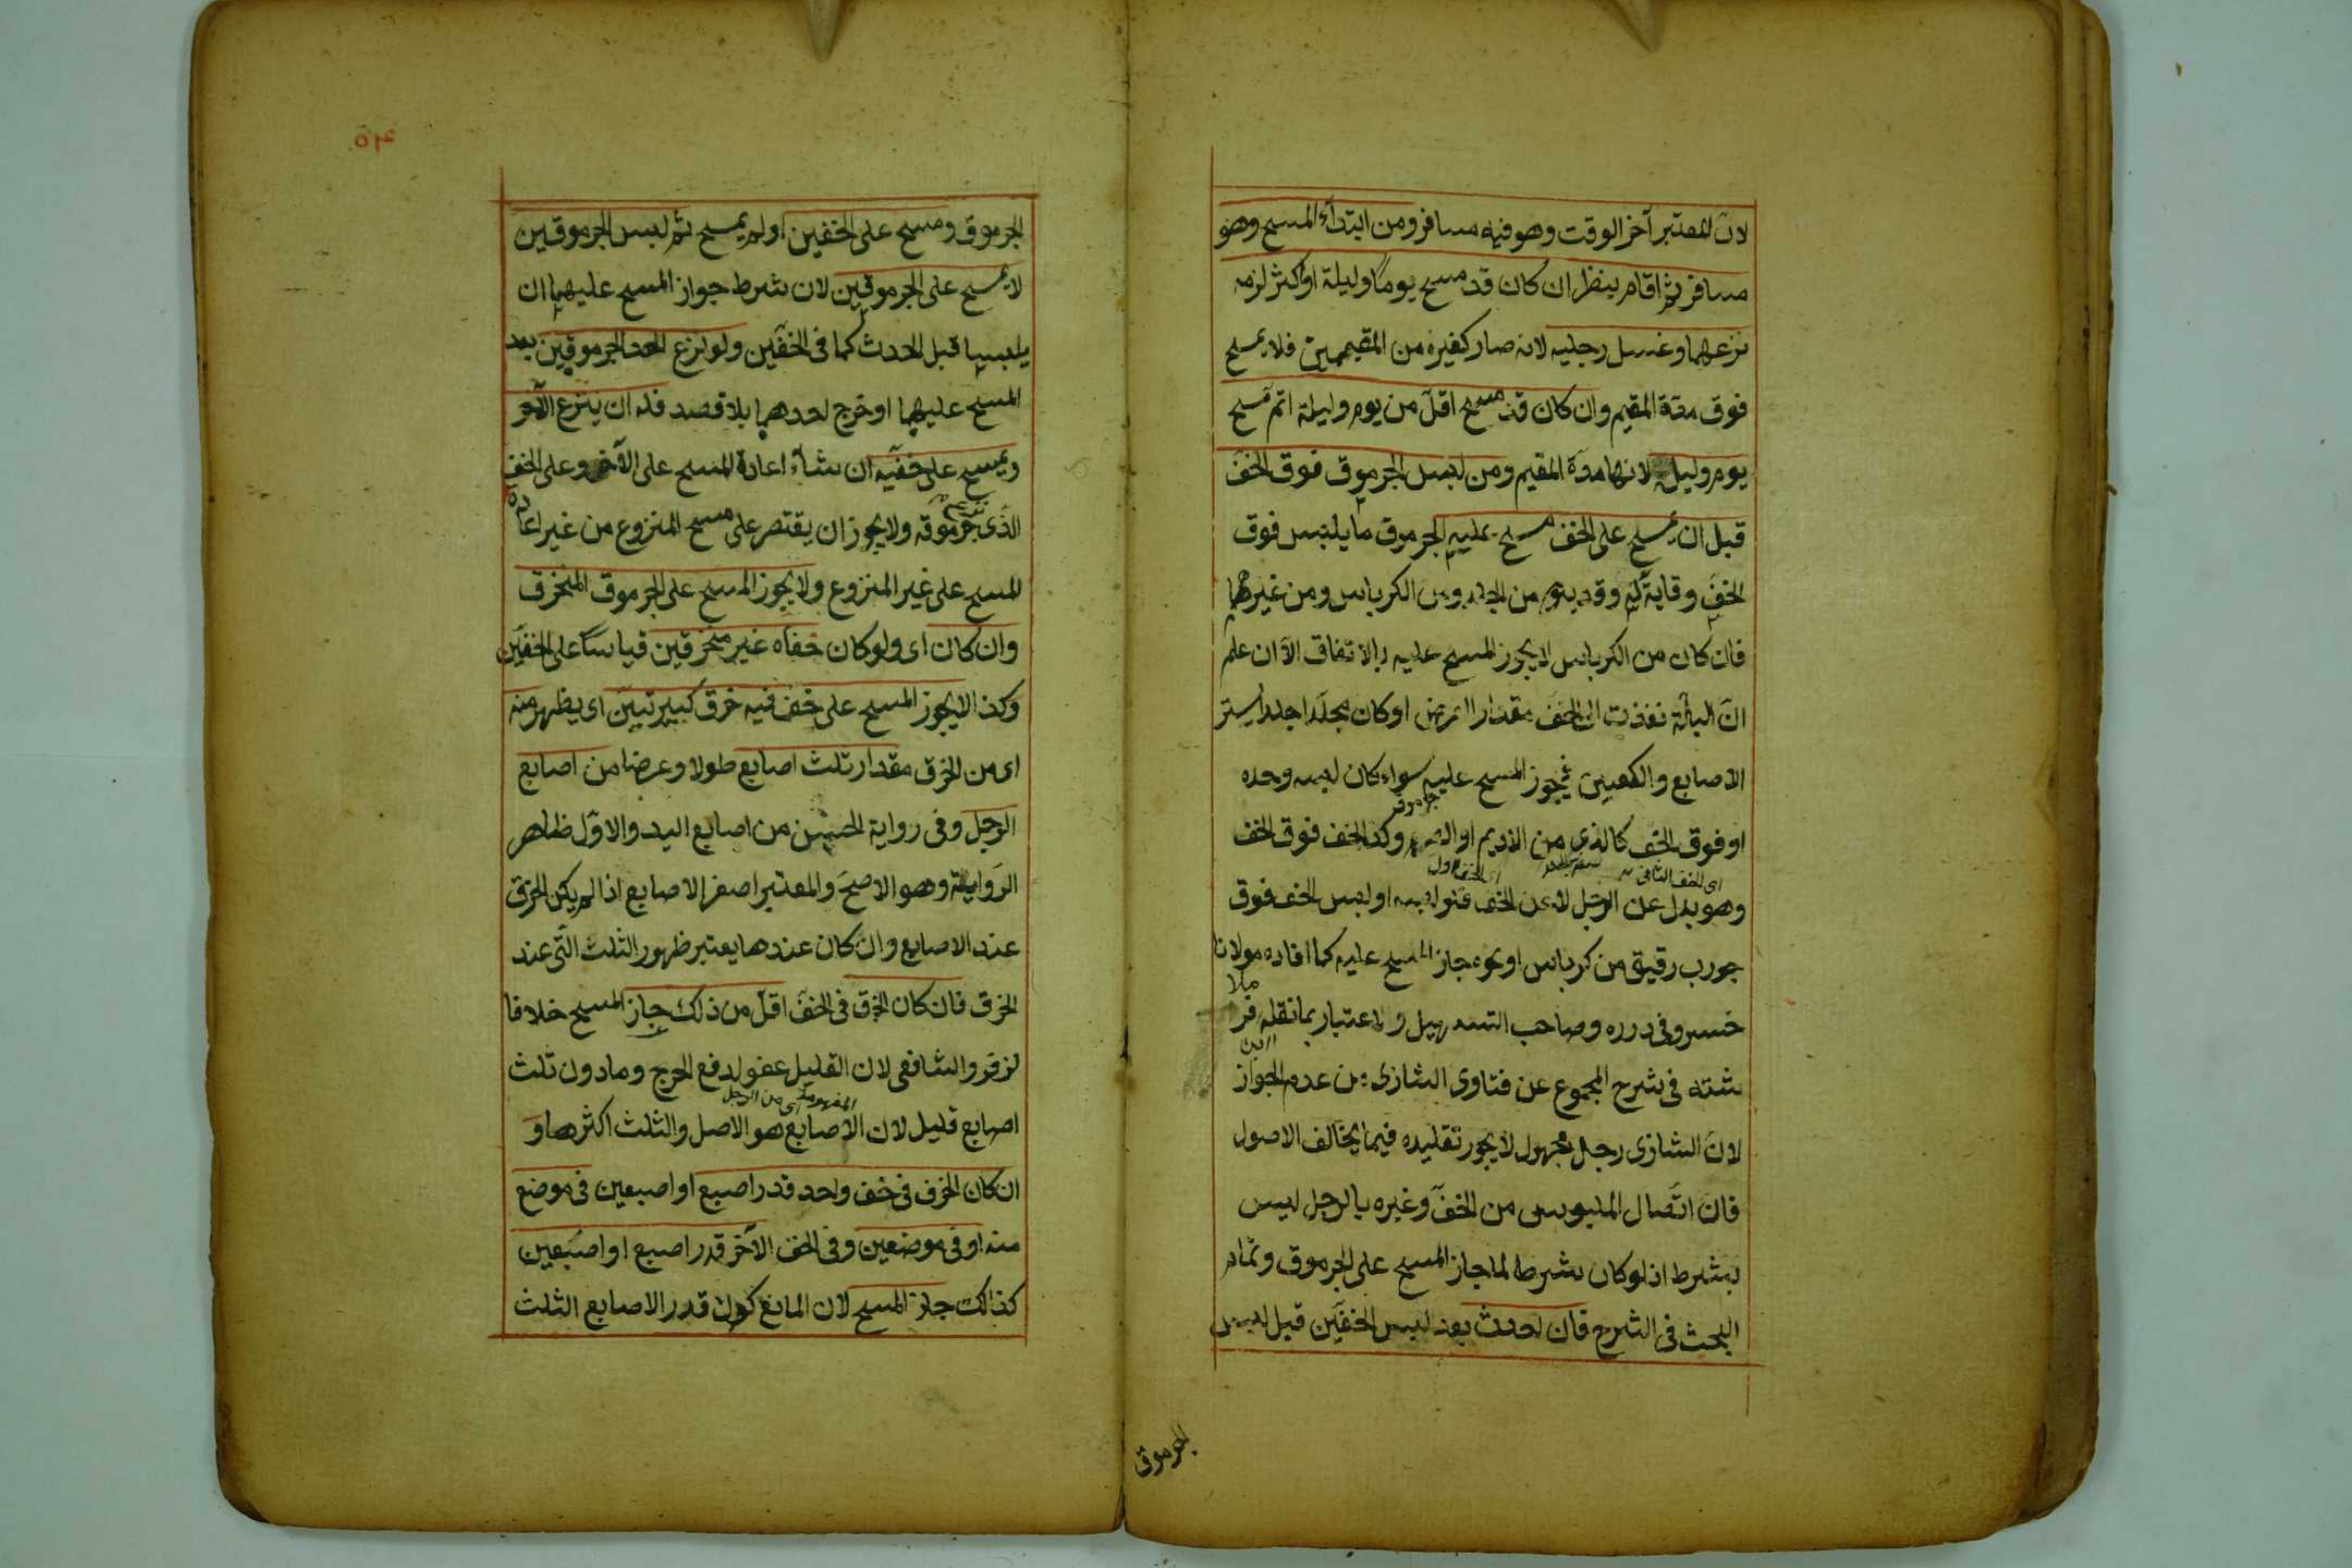 لان المعتبر آخر الوقت وهو فيه مسافر ومن ابتدأ المسح وهو
مسافر ثم اقام ينظر ان كان قد مسح يوما وليلة او اكثر لزمه
نزعهما وغسل رجليه لانه صار كغيره من المقيمين فلا يمسح
فوق مدة المقيم وان كان قد مسح اقل من يوم وليلة اتم مسح
يوم وليلة لانها مدة المقيم ومن لبس الجرموق فوق الخف
قبل ان يمسح على الخف مسح عليه الجرموق ما يلبس فوق
الخف وقاية له وقد يتخذ من الجلد ومن الكرباس ومن غيرهما
فان كان من الكرباس لا يجوز المسح عليه بالاتفاق الا ان علم
ان البلة نفذت الى الخف مقدار الفرض او كان مجلدا جلدا يستر
الاصابع والكعبين فيجوز المسح عليه سواء كان لبسه وحده
او فوق الخف كالذي من الاديم او وكذا الخف فوق الخف
اى الخف الثانى اى الخف الاول
وهو بدل عن الرجل لا عن الخف فلو لبسه او لبس الخف فوق
جورب رقيق من كرباس او نحوه جاز المسح عليه كما افاده مولانا
ملا
خسرو فى درره وصاحب التسهيل ولا اعتبار بما نقله فر
ابن
شته فى شرح المجموع عن فتاوى الشاذى من عدم الجواز
لان الشاذى رجل مجهول لا يجوز تقليده فيما يخالف الاصول
فان اتصال الملبوس من الخف وغيره بالرجل ليس
بشرط اذ لو كان بشرط لما جاز المسح على الجرموق وتمام
البحث فى الشرح فان احدث بعد لبس الخفين قبل لبس
الجرموق
٥٣
الجرموق ومسح على الخفين او لم يمسح ثم لبس الجرموقين
لا يمسح على الجرموقين لان شرط جواز المسح عليهما ان
يلبسا قبل الحدث كما فى الخفين ولو نزع احد الجرموقين بعد
المسح عليهما او خرج احدهما بلا قصد فله ان ينزع الآخر
ويمسح على خفيه ان شاء اعادة المسح على الآخر وعلى الخف
الذى جرموقه ولا يجوز ان يقتصر على مسح المنزوع من غير اعادة
المسح على غير المنزوع ولا يجوز المسح على الجرموق المنخرق
وان كان اى ولو كان خفاه غير منخرقين قياسا على الخفين
وكذا لا يجوز المسح على خف فيه خرق كبير تبين اى يظهر منه
اى من الخرق مقدار ثلث اصابع طولا وعرضا من اصابع
الرجل وفى رواية الحسن من اصابع اليد والاول ظاهر
الرواية وهو الاصح والمعتبر اصغر الاصابع اذا لم يكن الخرق
عند الاصابع وان كان عندها يعتبر ظهور الثلث التى عند
الخرق فان كان الخرق فى الخف اقل من ذلك جاز المسح خلافا
لزفر والشافعى لان القليل عفو لدفع الحرج وما دون ثلث
اى من الرجل
اصابع قليل لان الاصابع هو الاصل والثلث اكثرها و
ان كان الخرق فى خف واحد قدر اصبع او اصبعين فى موضع
منه او فى موضعين وفى الخف الآخر قدر اصبع او اصبعين
كذلك جاز المسح لان المانع كون قدر الاصابع الثلث